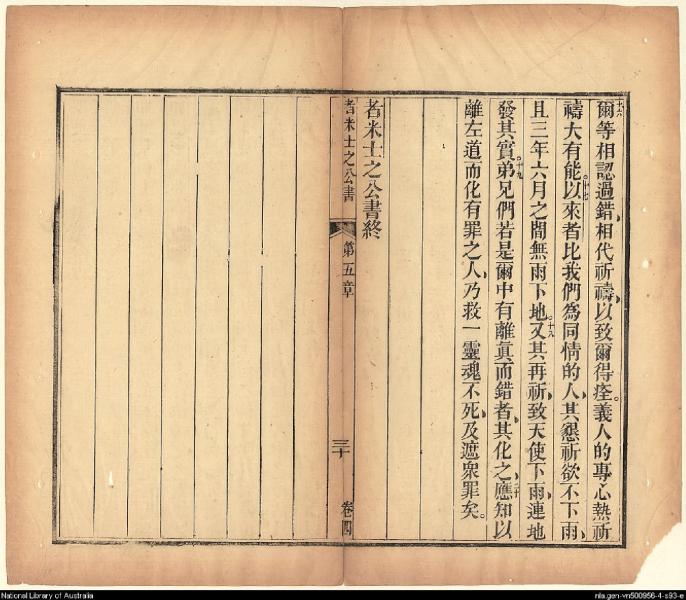 十六爾等相認過錯、相代祈禱、以致爾得痊。義人的專心熱祈
禱大有能。十七以來者比我們爲同情的人、其懇祈欲不下雨、
且三年六月之間無雨下地。十八又其再祈、致天使下雨、連地
發其實。十九弟兄們若是爾中有離眞而錯者、其化之、二十應知以
離左道而化有罪之人、乃救一靈魂不死、及遮衆罪矣。
者米士之公書終
者米士之公書 第五章 三十 卷四
National Library of Australia
nla.gen-vn500956-4-s93-e